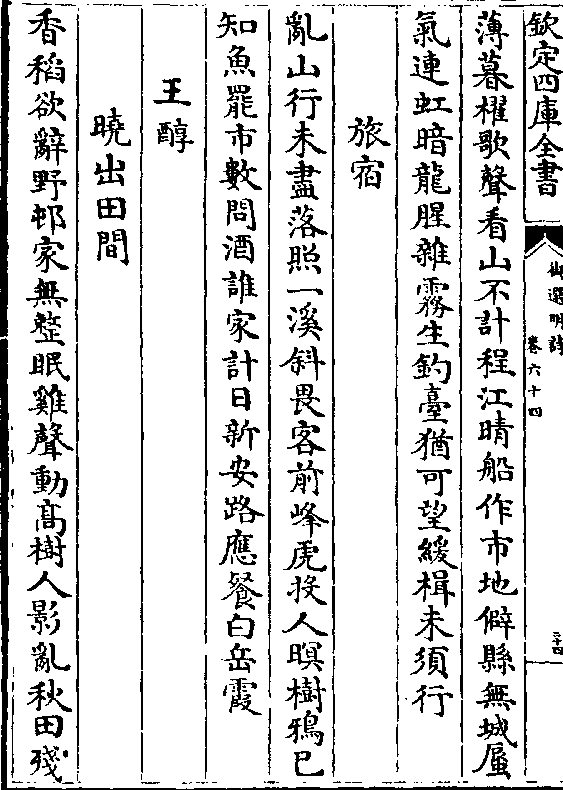 欽定四庫全書
御選明詩
卷六十四
三十四
薄暮櫂歌聲看山不計程江晴船作市地僻縣無城蜃
氣連虹暗龍腥雜霧生釣臺猶可望緩楫未須行
旅宿
亂山行未盡落照一溪斜畏客前峰虎投人暝樹鴉已
知魚罷市數問酒誰家計日新安路應餐白岳霞
王醇
曉出田間
香稻欲辭野邨家無整眠雞聲動髙樹人影亂秋田殘